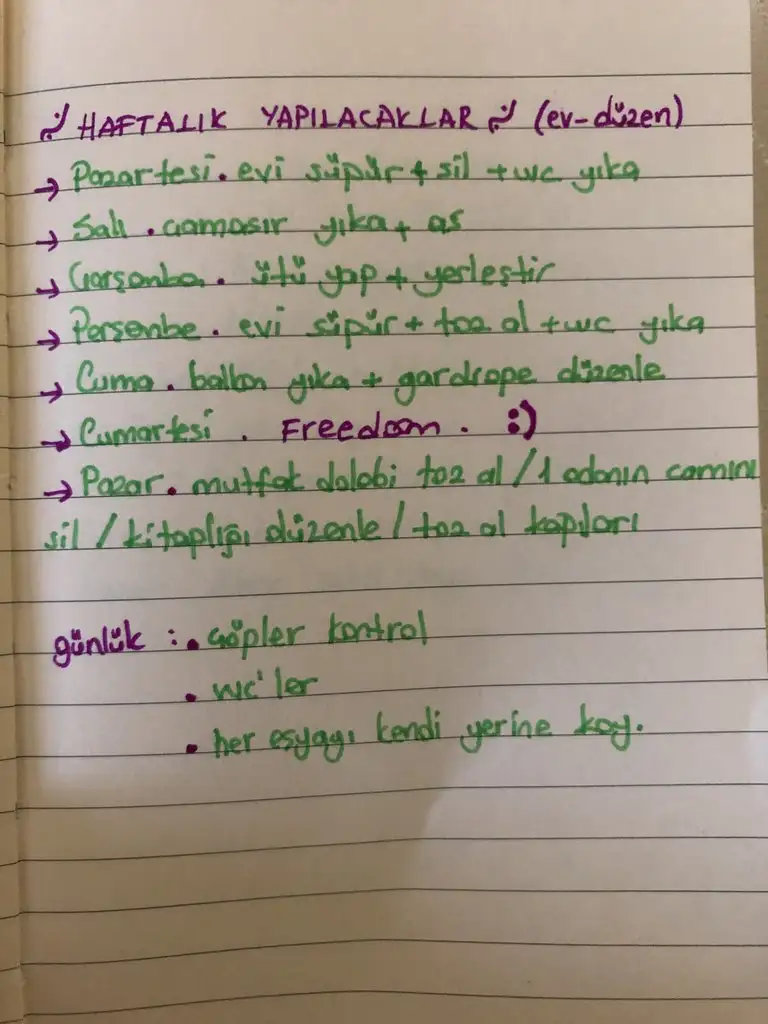 HAFTALIK YAPILACAKLAR (ev-düzen)
→ Pazartesi. evi süpür + sil + wc yıka
→ Salı . çamaşır yıka + as
→ Çarşanba. ütü yap + yerleştir
→ Perşenbe. evi süpür + toz al + wc yıka
→ Cuma. balkon yıka + gardrope düzenle
→ Cumartesi . Freedom. :)
→ Pazar. mutfak dolabi toz al / 1 odanın camını
sil / kitaplığı düzenle / toz al kapıları
günlük : • çöpler kontrol
• wc'ler
• her eşyayı kendi yerine koy.